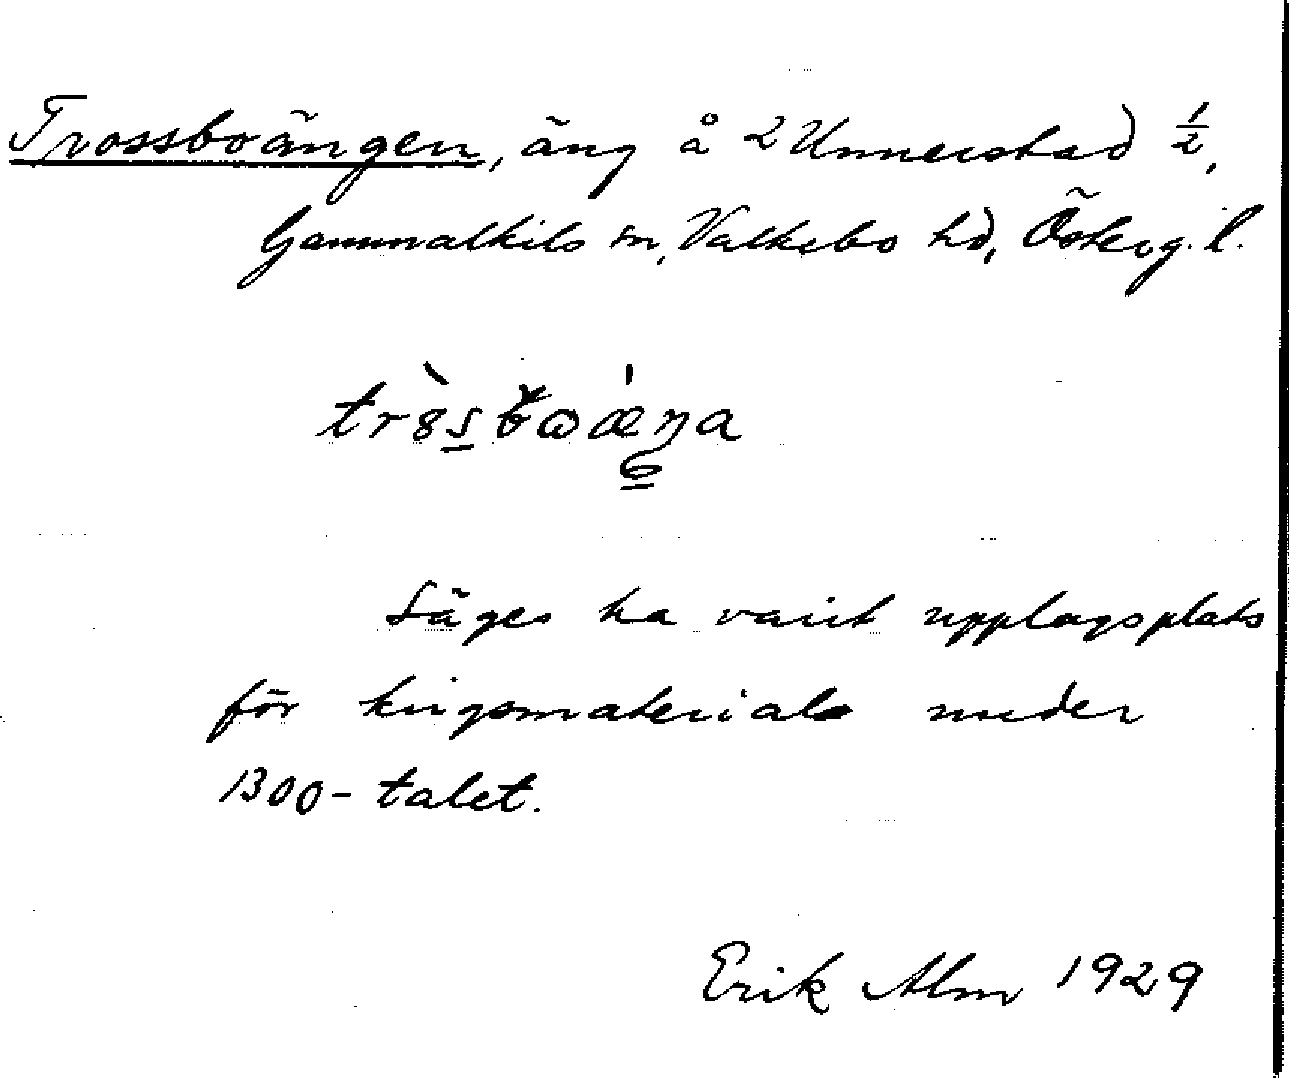 Trossboängen, äng å 2 Unnerstad 1/2,
Gammalkils sn, Valkebo hd, Österg. l.
Säges ha varit upplagsplats
för krigsmaterial under
1300-talet.
Erik Alm 1929